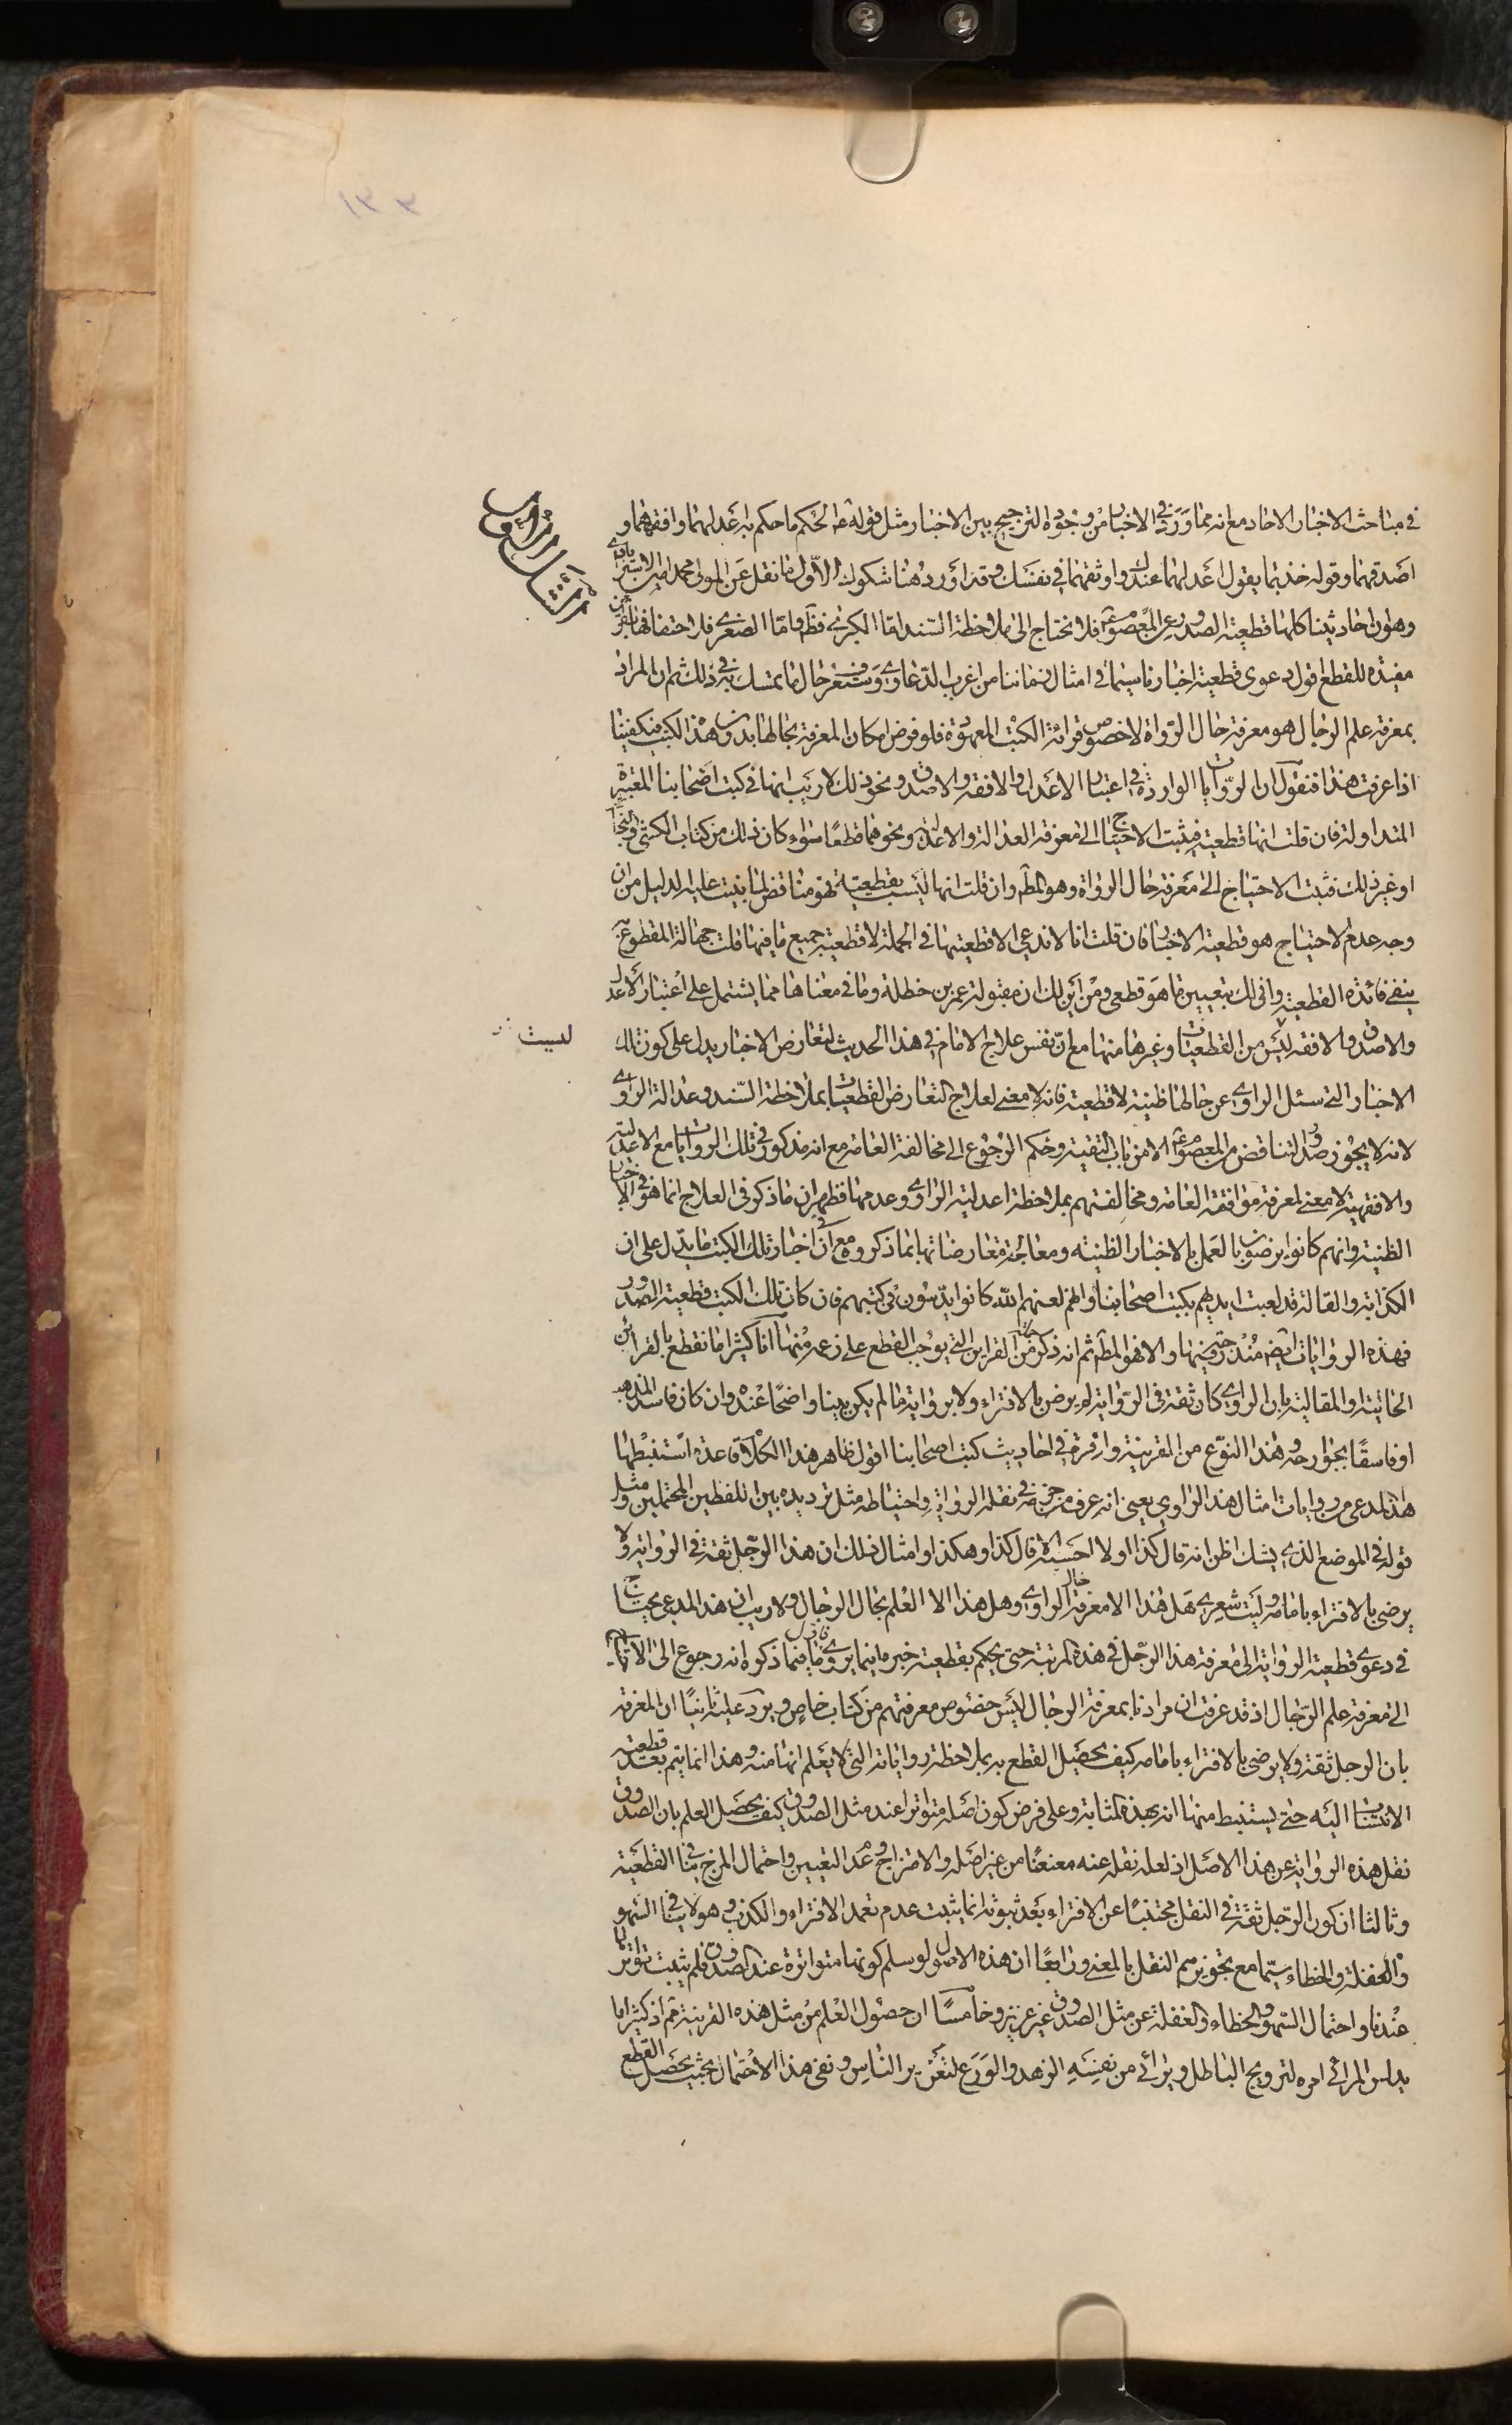 ١٣٣
في مباحث الاخبار الاحاد مع انه مما ورد في الاخبار من وجوه الترجيح بين الاخبار مثل قوله ع الحكم ما حكم به اعدلهما وافقههما و
اصدقهما وقوله خذ بما يقول اعدلهما عندك واوثقهما في نفسك وقد اورد هنا شكوك الاول ما نقل عن المولى محمد امين الاسترابادي
وهو ان احاديثنا كلها قطعية الصدور عن المعصوم ع فلا نحتاج الى ملاحظة السند اما الكبرى فظ واما الصغرى فلاحتفافها بالقراين
مفيدة للقطع اقول دعوى قطعية اخبارنا سيما في امثال زماننا من اغرب الدعاوى وستعرف حال ما تمسك به في ذلك ثم ان المراد
بمعرفة علم الرجال هو معرفة حال الرواة لا خصوص قرائة الكتب المعهودة فلو فرض امكان المعرفة بحالها بدون هذا الكتب فيكفينا
اذا عرفت هذا فنقول ان الروايات الواردة في اعتبار الاعدل والافقه والاصدق ونحو ذلك لا ريب انها في كتب اصحابنا المعتبرة
المتداولة فان قلت انها قطعية فيثبت الاحتياج الى معرفة العدالة والاعدلية ونحوهما قطعا سواء كان ذلك من كتاب الكشي والنجاشي
او غير ذلك فثبت الاحتياج الى معرفة حال الرواة وهو المط وان قلت انها ليست بقطعية فهو مناقض لما بنيت عليه الدليل من ان
وجه عدم الاحتياج هو قطعية الاخبار فان قلت انا لا ندعي الا قطعيتها في الجملة لا قطعية جميع ما فيها قلت جهالة المقطوع به
ينفي فائدة القطعية وانى لك بتعيين ما هو قطعي ومن اين لك ان مقبولة عمر بن حنظلة وما في معناها مما يشتمل على اعتبار الاعدل
والاصدق والافقه ليس من القطعيات وغيرها منها مع ان نفس علاج الامام في هذا الحديث لتعارض الاخبار يدل على كون تلك
ليست
الاخبار التي سئل الراوي عن حالها ظنية لا قطعية فانه لا معنى لعلاج التعارض القطعيات بملاحظة السند وعدالة الراوي
لانه لا يجوز صدور التناقض من المعصوم ع الا من باب التقية وحكم الرجوع الى مخالفة العامة مع انه مذكور في تلك الروايات مع الاعدلية
والافقهية لا معنى لمعرفة موافقة العامة ومخالفتهم بملاحظة اعدلية الراوي وعدمها فظهر ان ما ذكر في العلاج انما هو في الاخبار
الظنية وانهم كانوا يرضون بالعمل بالاخبار الظنية ومعالجة معارضاتها بما ذكروه مع ان في اخبار تلك الكتب ما يدل على ان
الكذابة والقالة قد لعبت ايديهم بكتب اصحابنا وانهم لعنهم الله كانوا يدسون في كتبهم فان كان تلك الكتب قطعية الصدور
فهذه الروايات ايضا مندرجة فيها والا فهو المط ثم انه ذكر من جملة القراين التي يوجب القطع على زعمه منها انا كثيرا ما نقطع بالقرائن
الحالية او المقالية بان الراوي كان ثقة في الرواية لم يرض بالافتراء ولا برواية ما لم يكن بينا واضحا عنده وان كان فاسد المذهب
او فاسقا بجوارحه وهذا النوع من القرينة وافرة في احاديث كتب اصحابنا اقول ظاهر هذا الكلام قاعدة استنبطها
هذا المدعي من روايات امثال هذا الراوي يعني انه عرف من حزمه في نقله الرواية واحتياطه مثل ترديده بين اللفظين المحتملين ومثل
قوله في الموضع الذي يشك اظن انه قال كذا او لا احسبه الا قال كذا وهكذا او امثال ذلك ان هذا الرجل ثقة في الرواية ولا
يرضى بالافتراء بامامه وليت شعري هل هذا الا معرفة حال الراوي وهل هذا الا العلم بحال الرجال ولا ريب ان هذا المدعي يحتاج
في دعوى قطعية الرواية الى معرفة هذا الرجل في هذه المرتبة حتى يحكم بقطعية خبره فيما يروي فما ذكره انه رجوع الى
الى معرفة علم الرجال اذ قد عرفت ان مرادنا بمعرفة الرجال ليس خصوص معرفتهم من كتاب خاص ويرد عليه ثانيا ان المعرفة
بان الرجل ثقة ولا يرضى بالافتراء بامامه كيف يحصل القطع به بملاحظة رواياته التي لا يعلم انها منه وهذا انما يتم بعد قطعية
الانتساب اليه حتى يستنبط منها انه بهذه المثابة وعلى فرض كون اصله متواترا عند مثل الصدوق كيف يحصل العلم بان الصدوق
نقل هذه الرواية عن هذا الاصل اذ لعله نقله عنه معنعنا من غير اصله والامتزاج وعدم التعيين واحتمال المزج ينافي القطعية
وثالثا ان كون الرجل ثقة في النقل مجتنبا عن الافتراء بعد ثبوته انما يثبت عدم تعمد الافتراء والكذب وهو لا ينافي السهو
والغفلة والخطاء سيما مع تجويزهم النقل بالمعنى ورابعا ان هذه الاصول لو سلم كونها متواترة عند الصدوق فلم يثبت تواترها
عندنا واحتمال السهو والخطاء والغفلة عن مثل الصدوق غير عزيز وخامسا ان حصول العلم من مثل هذه القرينة ثم اذ كثيرا ما
يدلس المرائي امره لترويج الباطل ويرائي من نفسه الزهد والورع لتغرير الناس ونفي هذا الاحتمال بحيث يحصل القطع